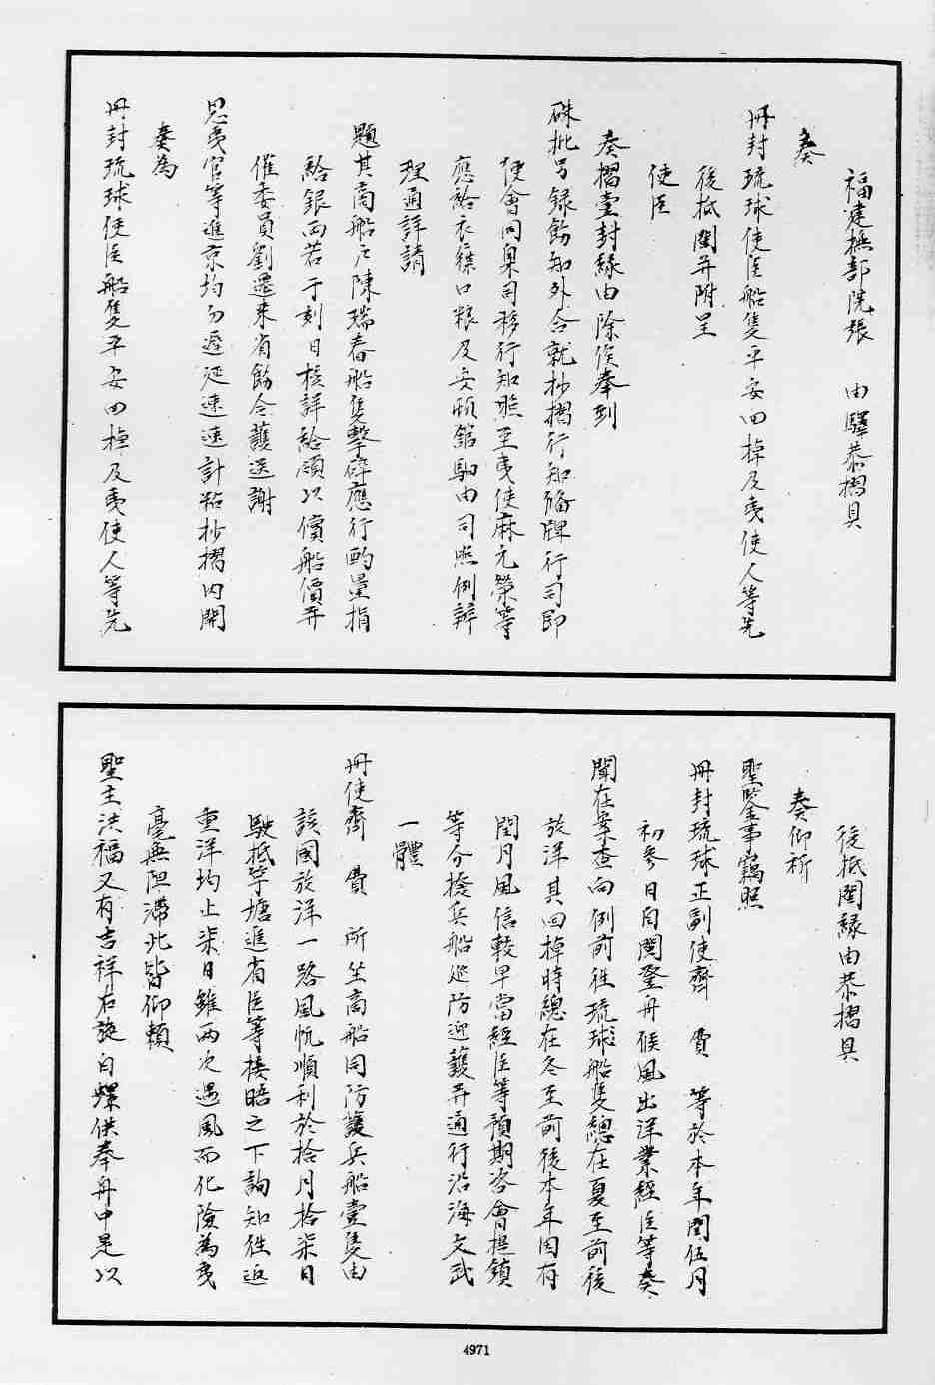 福建撫部院張　由驛恭摺具
奏
冊封琉球使臣船隻平安回棹及夷使人等先
後抵閩并附呈
使臣
奏摺壹封緣由除俟奉到
硃批另錄飭知外合就抄摺行知備牌行司即
便會同臬司移行知照至夷使麻元榮等
應給衣糧口粮及安頓舘馹由司照例辦
理通詳請
題其商船户陳瑞春船隻擊碎應行酌量捐
給銀兩若干刻日核詳給領以償船價并
催委員劉還來省飭令護送謝
恩夷官等進京均勿遲延速速計粘抄摺内開
奏為
冊封琉球使臣船隻平安回棹及夷使人等先
後抵閩緣由恭摺具
奏仰祈
聖鑒事竊照
冊封琉球正副使齊　費　等於本年閏伍月
初參日自閩登舟候風出洋業經臣等奏
聞在案查向例前往琉球船隻總在夏至前後
放洋其回棹時總在冬至前後本年因有
閏月風信較早當經臣等預期咨會提鎮
等分撥兵船巡防迎護并通行沿海文武
一體
冊使齊　費　所坐商船同防護兵船壹隻由
該國放洋一路風帆順利於拾月拾柒日
駛抵亭塘進省臣等接晤之下詢知往返
重洋均止柒日雖兩次遇風而化險為夷
毫無阻滯此皆仰賴
聖主洪福又有吉祥右旋白螺供奉舟中是以
4971